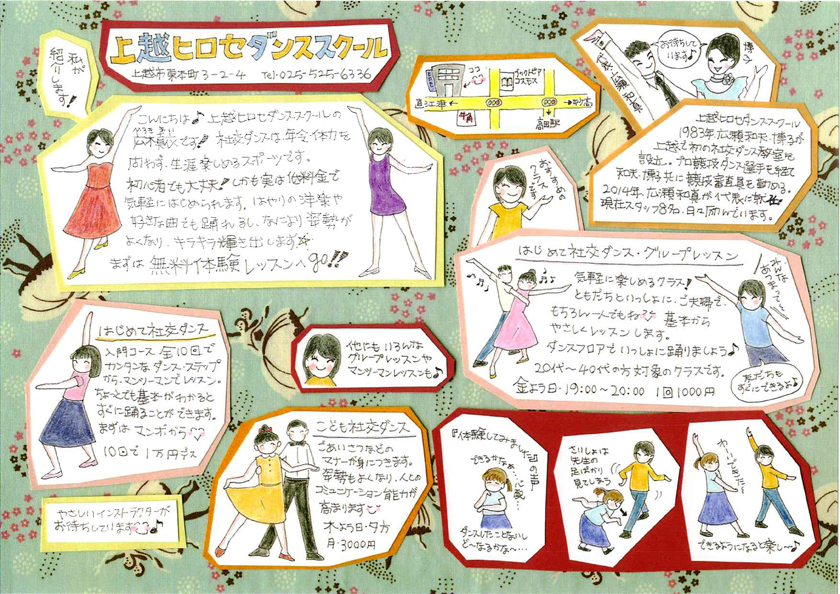 私が
紹介します!
上越ヒロセダンススクール
上越市東本町3-2-4 Tel・025-525-6336
ココ
ブックドピア
コスモス
直江津
牛角
高田駅
お待ちして
います♪
博子
こんにちは♪上越ヒロセダンススクールの
です!! 社交ダンスは、年令・体力を
問わず、生涯楽しめるスポーツです。
初心者でも大丈夫!しかも実は低料金で
気軽にはじめられます。はやりの洋楽や
好きな曲でも踊れるし、なにより姿勢が
よくなり、キラキラ輝き出します☆
まずは無料体験レッスンへgo!!
上越ヒロセダンススクール
1983年、広瀬和夫・博子が
上越で初の社交ダンス教室を
設立。プロ競技ダンス選手を経て
和夫・博子共に競技審査員を勤める。
2014年、広瀬和真が代表に就任
現在スタッフ8名、日々励んでいます。
おすすめの
クラスです
はじめて社交ダンス・グループレッスン
気軽に楽しめるクラス!
ともだちといっしょに、ご夫婦で、
もちろん一人でもね♡ 基本から
やさしくレッスンします。
ダンスフロアでいっしょに踊りましょう♪
20代~40代の方対象のクラスです。
金よう日・19:00~20:00 1回1000円
みんな
あつまって~
友だちも
すぐにできるよ♪
はじめて社交ダンス
入門コース 全10回で
カンタンなダンス・ステップ
から、マンツーマンでレッスン。
ちょっとでも基本がわかると
すぐに踊ることができます。
まずはマンボから♡
10回で1万円デス
他にもいろんな
グループレッスンや
マンツーマンレッスンも♪
こども社交ダンス
ごあいさつなどの
マナーが身につきます。
姿勢もよくなり、人との
コミュニケーション能力が
高まります♡
木よう日・夕方
月・3000円
やさしいインストラクターが
お待ちしています♡♪
体験してみました の声
できるかなぁ
心配…
ダンスしたことないし
ど~なるかな~…
さいしょは
先生の
足ばかり
見てしまう
できるようになると楽し~♪